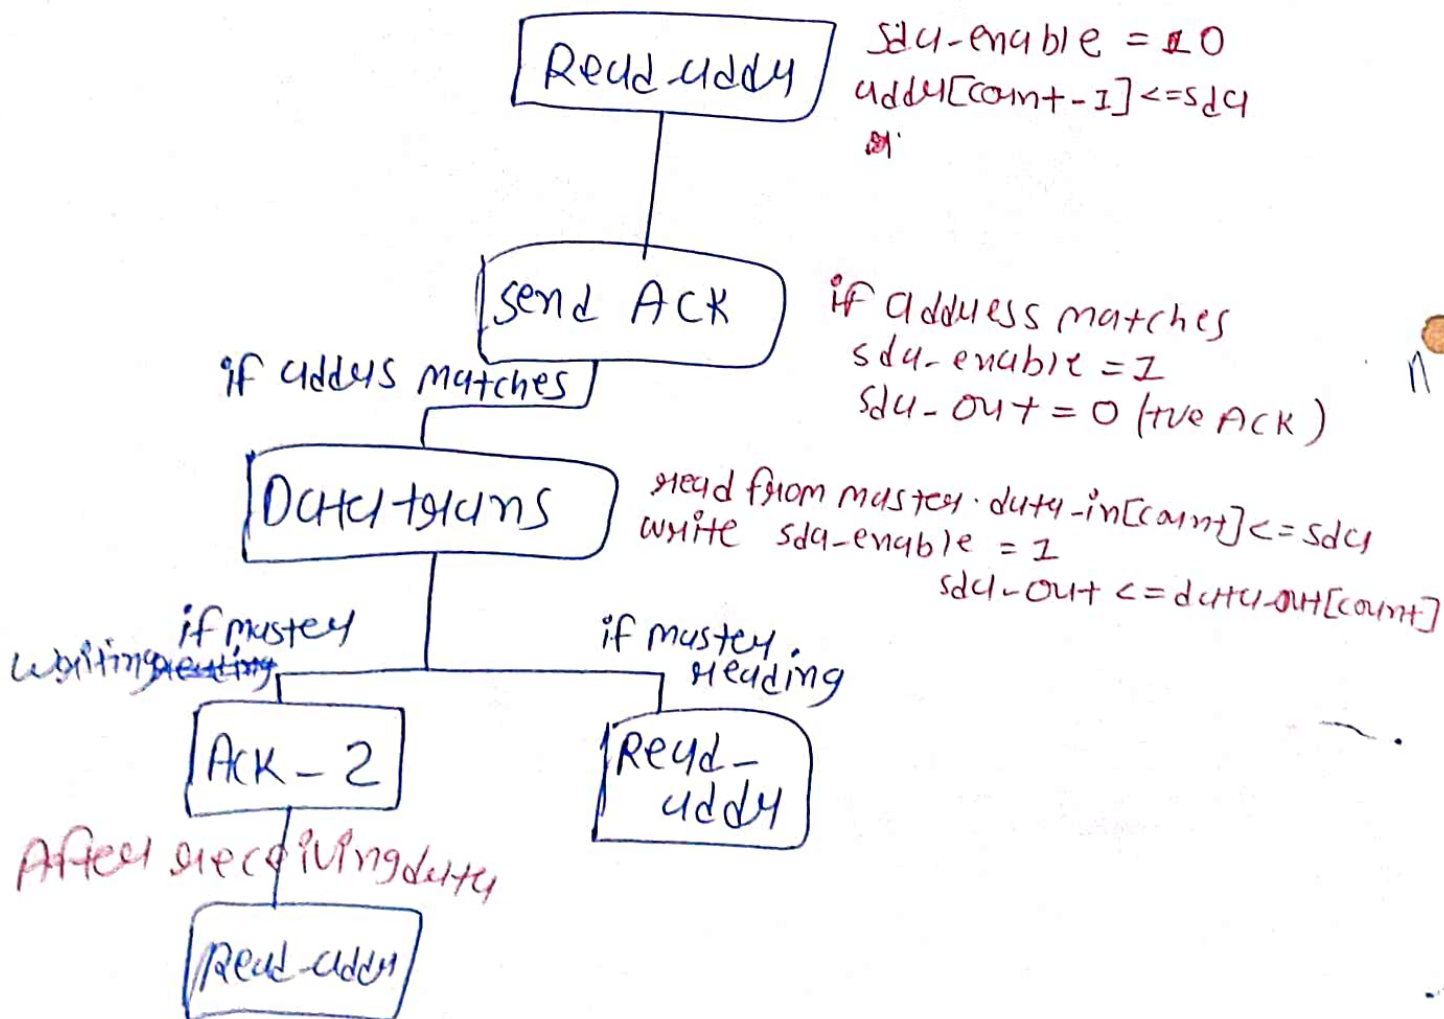 Read_addr
sda-enable = 0
addr[count-1]<=sda
send ACK
if address matches
sda-enable = 1
sda-out = 0 (+ve ACK)
if addrs matches
Data trans
read from master. data-in[count]<=sda
write sda-enable = 1
sda-out <= data-out[count]
if master
writing
if master
reading
ACK-2
Read-
addr
After receiving data
Read-addr
n